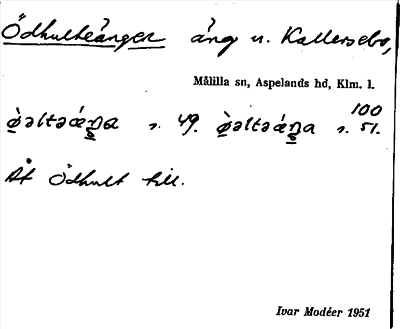 Ödhulteängen äng u. Kallersebo,
Målilla sn, Aspelands hd, Klm. l.
100
s. 49. s. 51.
Åt Ödhult till.
Ivar Modéer 1951